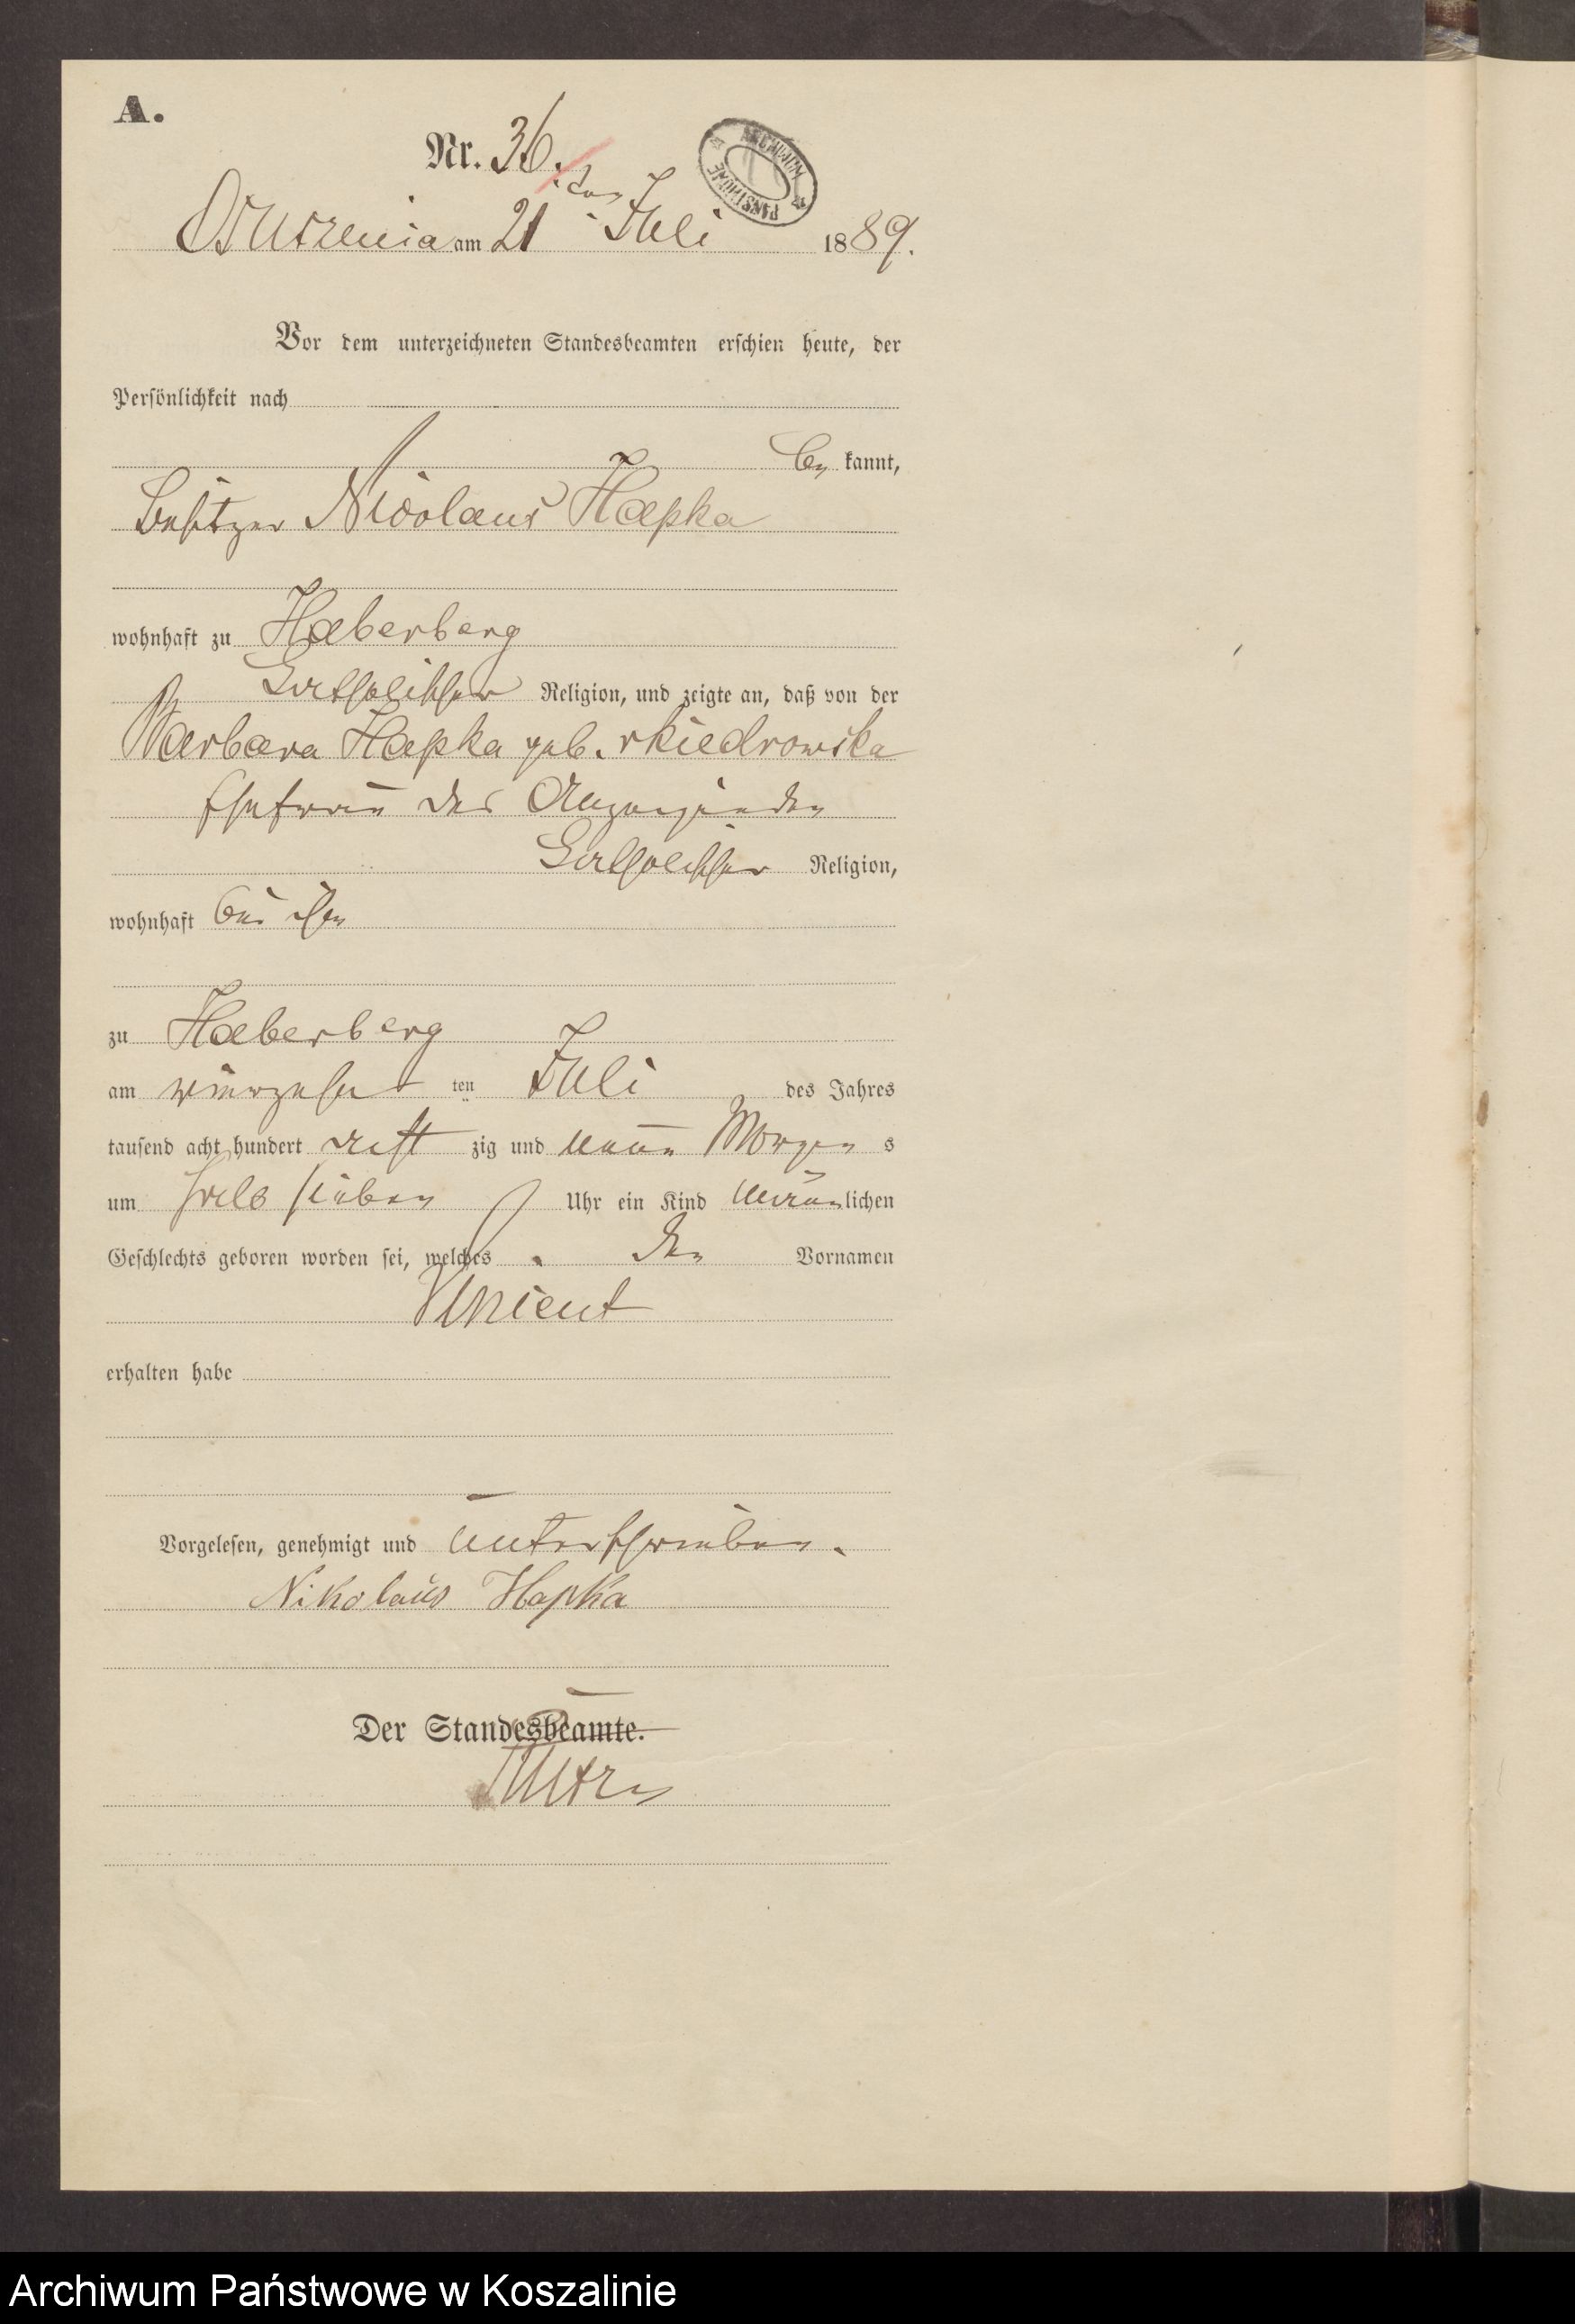 A.
Nr. 36.
am 21 ten Juli 1889.
ARCHIWUM PAŃSTWOWE
Vor dem unterzeichneten Standesbeamten erschien heute, der
Persönlichkeit nach
be kannt,
Besitzer Nicolaus Hapka
wohnhaft zu Haberberg
katholischer Religion, und zeigte an, daß von der
Barbara Hapka geb. Kiedrowska
Ehefrau des Anzeigenden
katholischer Religion,
wohnhaft bei ihm
zu Haberberg
am vierzehn ten Juli des Jahres
tausend acht hundert acht zig und neun Morgen s
um halb sieben Uhr ein Kind männlichen
Geschlechts geboren worden sei, welches den Vornamen
Vincent
erhalten habe
Vorgelesen, genehmigt und unterschrieben.
Nikolaus Hapka
Der Standesbeamte.
Archiwum Państwowe w Koszalinie